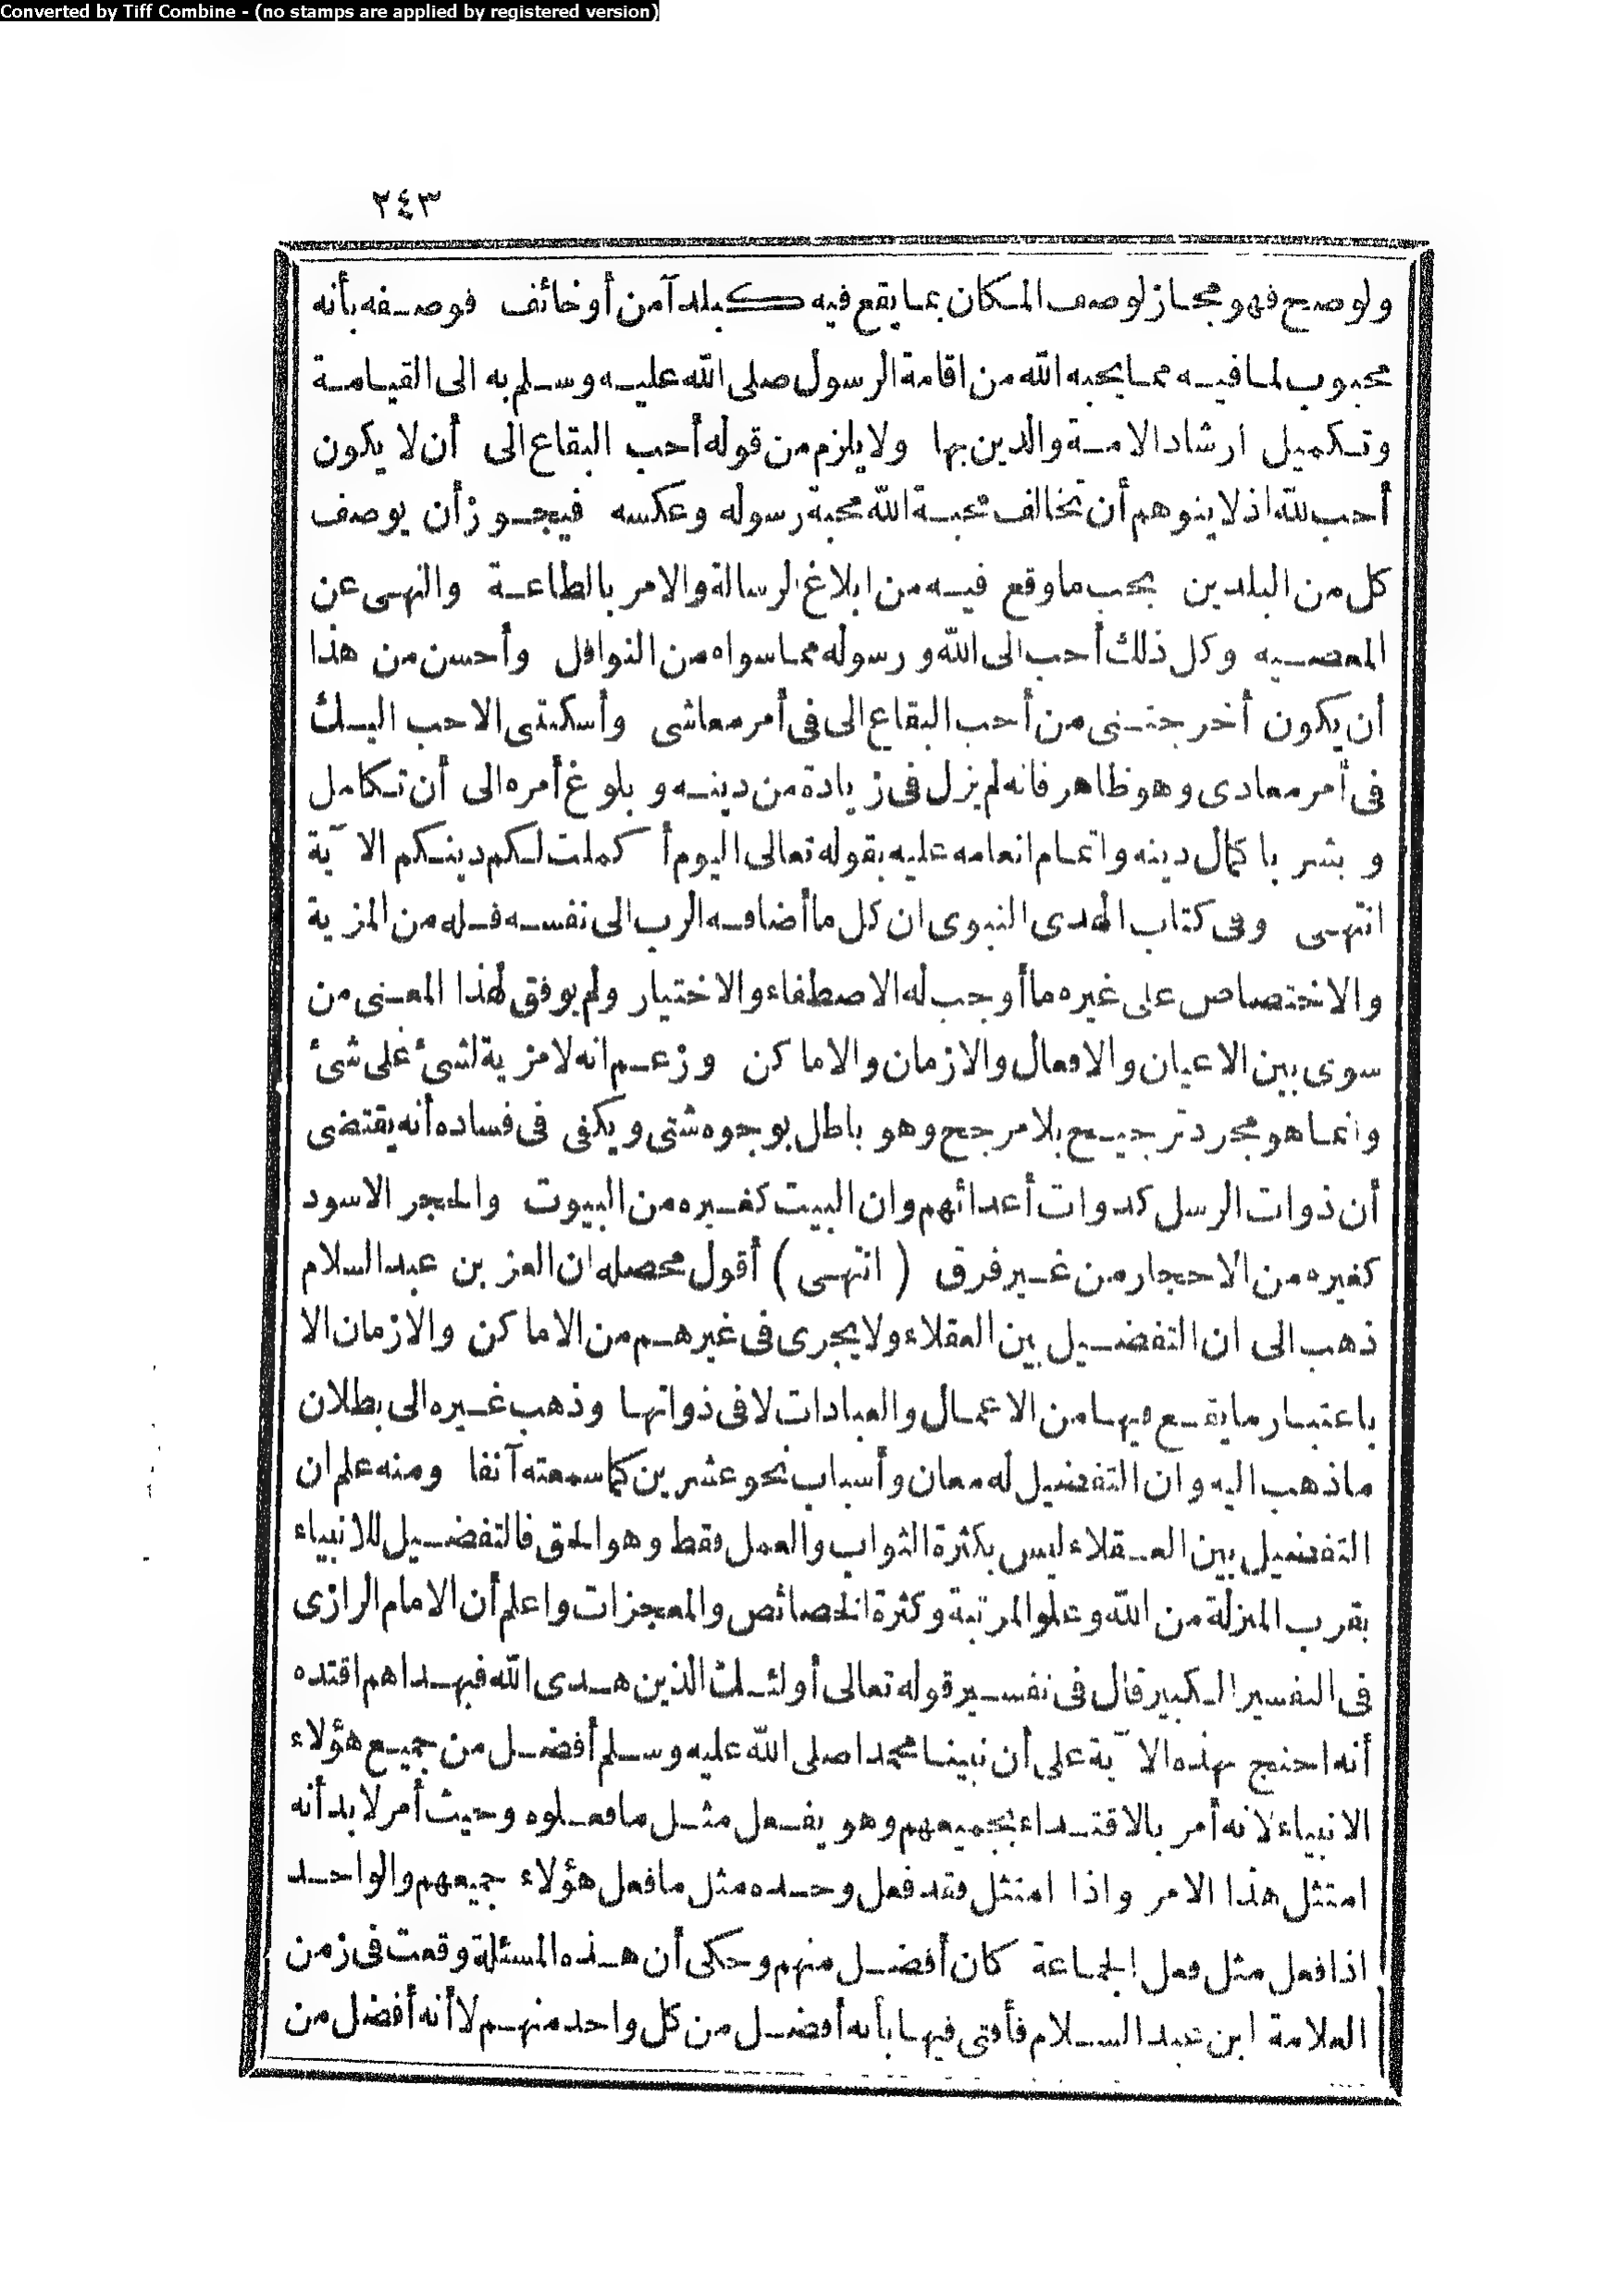 Converted by Tiff Combine - (no stamps are applied by registered version)
٢٤٣
ولو صح فهو مجاز لوصف المكان بما يقع فيه كبلد آمن أو خائف فوصفه بأنه
محبوب لما فيه مما يحبه الله من اقامة الرسول صلى الله عليه وسلم به الى القيامة
وتكميل ارشاد الامة والدين بها ولا يلزم من قوله أحب البقاع الى أن لا يكون
أحب لله اذ لا يتوهم أن تخالف محبة الله محبة رسوله وعكسه فيجوز أن يوصف
كل من البلدين بحب ما وقع فيه من ابلاغ الرسالة والامر بالطاعة والنهى عن
المعصيه وكل ذلك أحب الى الله ورسوله مما سواه من النوافل وأحسن من هذا
أن يكون أخرجتنى من أحب البقاع الى فى أمر معاشى وأسكنتى الاحب اليك
فى أمر معادى وهو ظاهر فانه لم يزل فى زيادة من دينه وبلوغ أمره الى أن تكامل
وبشر باكمال دينه واتمام انعامه عليه بقوله تعالى اليوم أكملت لكم دينكم الآية
انتهى وفى كتاب الهدى النبوى ان كل ما أضافه الرب الى نفسه فله من المزية
والاختصاص على غيره ما أوجب له الاصطفاء والاختيار ولم يوفق لهذا المعنى من
سوى بين الاعيان والافعال والازمان والاماكن وزعم انه لا مزية لشئ على شئ
وانما هو مجرد ترجيح بلا مرجح وهو باطل بوجوه شتى ويكفى فى فساده أنه يقتضى
أن ذوات الرسل كذوات أعدائهم وان البيت كغيره من البيوت والحجر الاسود
كغيره من الاحجار من غير فرق (انتهى) أقول محصله ان العز بن عبد السلام
ذهب الى ان التفضيل بين العقلاء ولا يجرى فى غيرهم من الاماكن والازمان الا
باعتبار ما يقع فيها من الاعمال والعبادات لا فى ذواتها وذهب غيره الى بطلان
ما ذهب اليه وان التفضيل له معان وأسباب نحو عشرين كما سمعته آنفا ومنه علم ان
التفضيل بين العقلاء ليس بكثرة الثواب والعمل فقط وهو الحق فالتفضيل للانبياء
بقرب المنزلة من الله وعلو المرتبة وكثرة الخصائص والمعجزات واعلم أن الامام الرازى
فى التفسير الكبير قال فى تفسير قوله تعالى أولئك الذين هدى الله فبهداهم اقتده
أنه احتج بهذه الآية على أن نبينا محمدا صلى الله عليه وسلم أفضل من جميع هؤلاء
الانبياء لانه أمر بالاقتداء بجميعهم وهو يفعل مثل ما فعلوه وحيث أمر لا بد أنه
امتثل هذا الامر واذا امتثل فقد فعل وحده مثل ما فعل هؤلاء جميعهم والواحد
اذا فعل مثل فعل الجماعة كان أفضل منهم وحكى أن هذه المسئلة وقعت فى زمن
العلامة ابن عبد السلام فأفتى فيها بأنه أفضل من كل واحد منهم لا أنه أفضل من